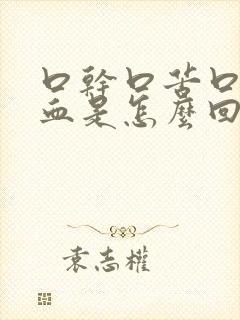 口幹口苦口
血是怎麼回
袁志權